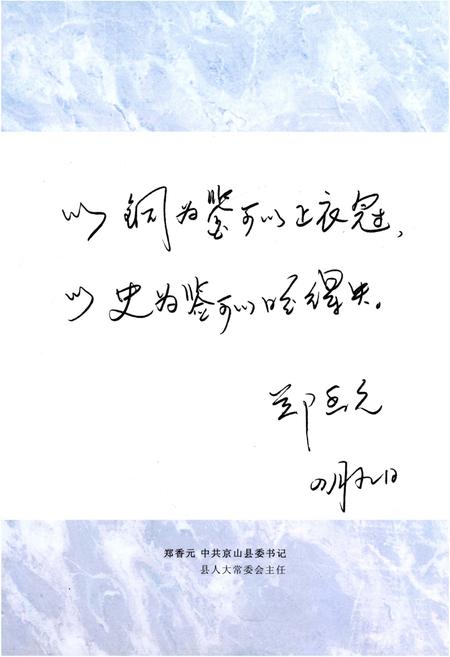 以铜为鉴可以正衣冠，
以史为鉴可以得失。
郑香元
四月九日
郑香元 中共京山县委书记
县人大常委会主任